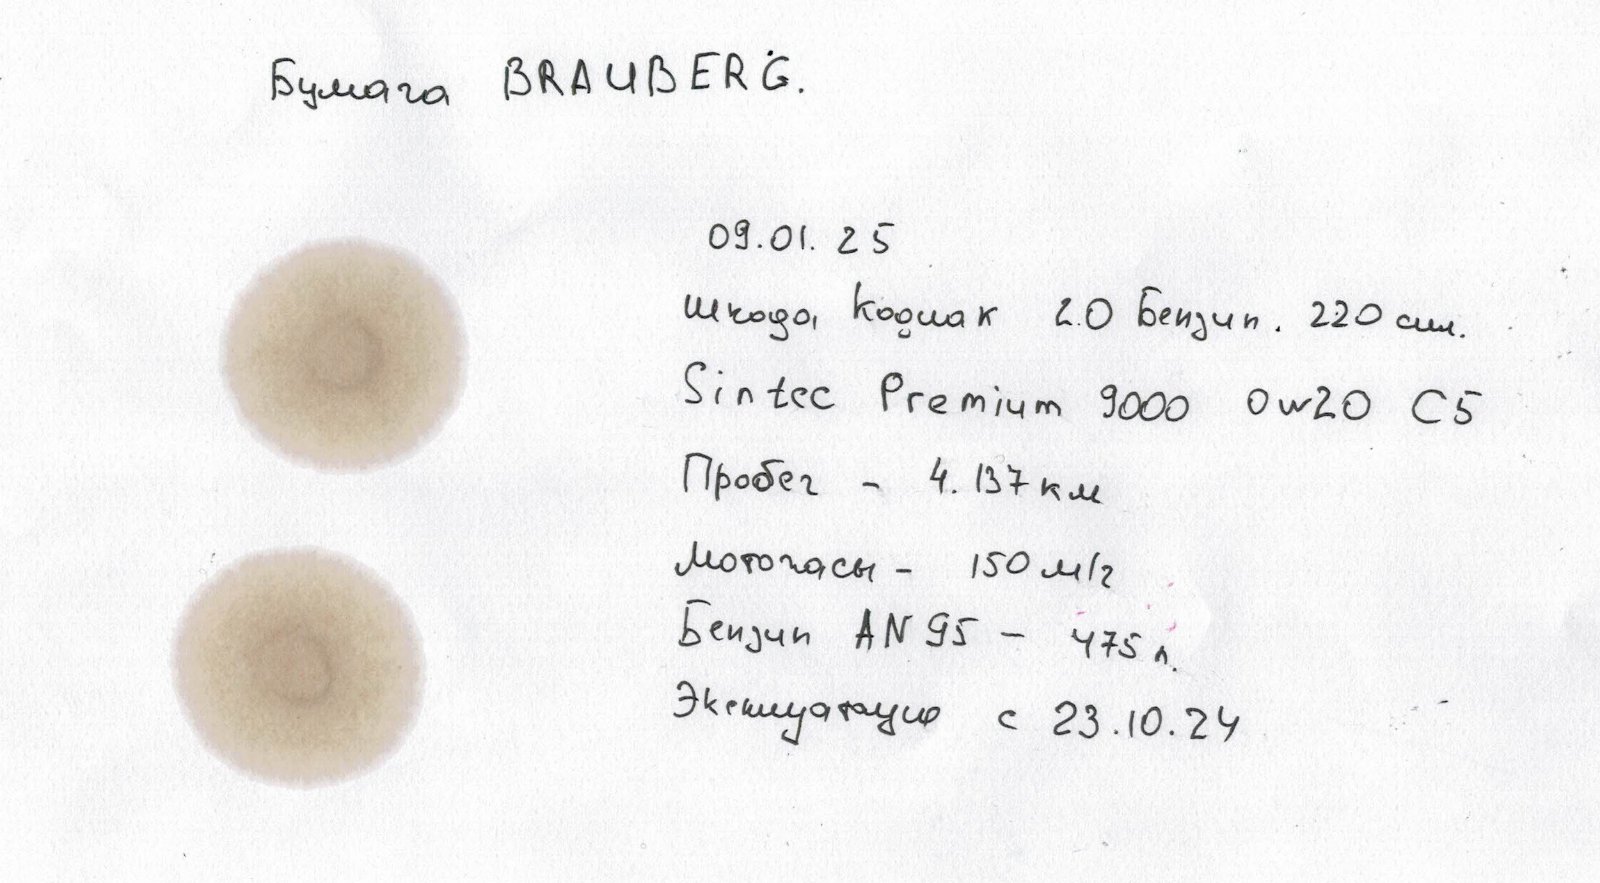 Бумага BRAUBERG.
09.01.25
Шкода Кодиак 2.0 Бензин. 220 сил.
Sintec Premium 9000 0w20 C5
Пробег - 4.137 км
Моточасы - 150 м/г
Бензин AN 95 - 475 л.
Эксплуатация с 23.10.24